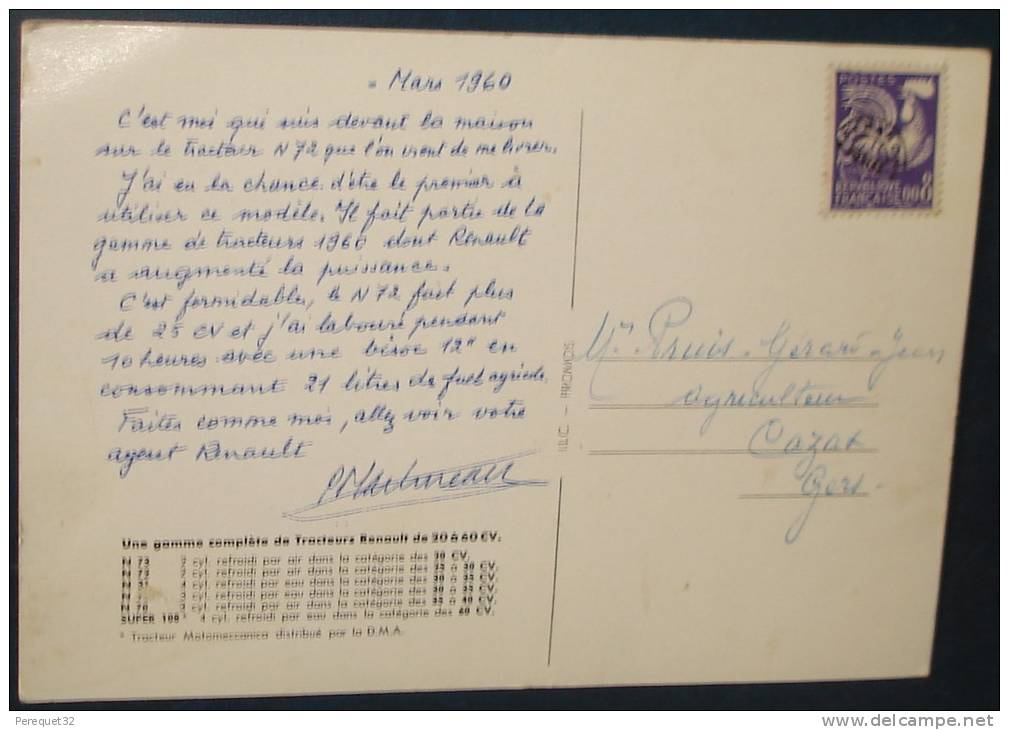 Mars 1960
C'est moi qui suis devant la maison
sur le tracteur N 72 que l'on vient de me livrer.
J'ai eu la chance d'être le premier à
utiliser ce modèle. Il fait partie de la
gamme de tracteurs 1960 dont Renault
a augmenté la puissance.
C'est formidable, le N 72 fait plus
de 25 CV et j'ai labouré pendant
10 heures avec une bisoc 12" en
consommant 21 litres de fuel agricole.
Faites comme moi, allez voir votre
agent Renault
Une gamme complète de Tracteurs Renault de 20 à 60 CV.
N 73 2 cyl. refroidi par air dans la catégorie des 20 CV.
2 cyl. refroidi par air dans la catégorie des 25 à 30 CV.
cyl. refroidi par eau dans la catégorie des 30 à 35 CV.
cyl. refroidi par eau dans la catégorie des 30 à 35 CV.
N 70 3 cyl. refroidi par air dans la catégorie des 35 à 40 CV.
SUPER 100 * 4 cyl. refroidi par eau dans la catégorie des 60 CV.
* Tracteur Motomeccanica distribué par la D.M.A.
POSTES
REPUBLIQUE
FRANÇAISE 0,08
Mr Pruis Gérard Jean
agriculteur
Cazax
Gers
Perequet32
www.delcampe.net